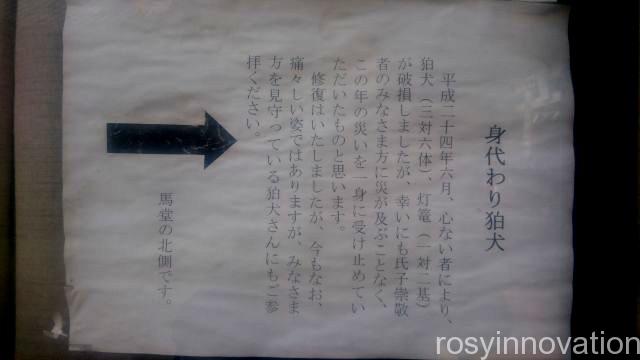 身代わり狛犬
平成二十四年六月、心ない者により、
狛犬（三対六体）、灯篭（一対二基）
が破損しましたが、幸いにも氏子崇敬
者のみなさま方に災が及ぶことなく、
この年の災いを一身に受け止めてい
ただいたものと思います。
修復はいたしましたが、今もなお、
痛々しい姿ではありますが、みなさま
方を見守っている狛犬さんにもご参
拝ください。
馬堂の北側です。
rosyinnovation